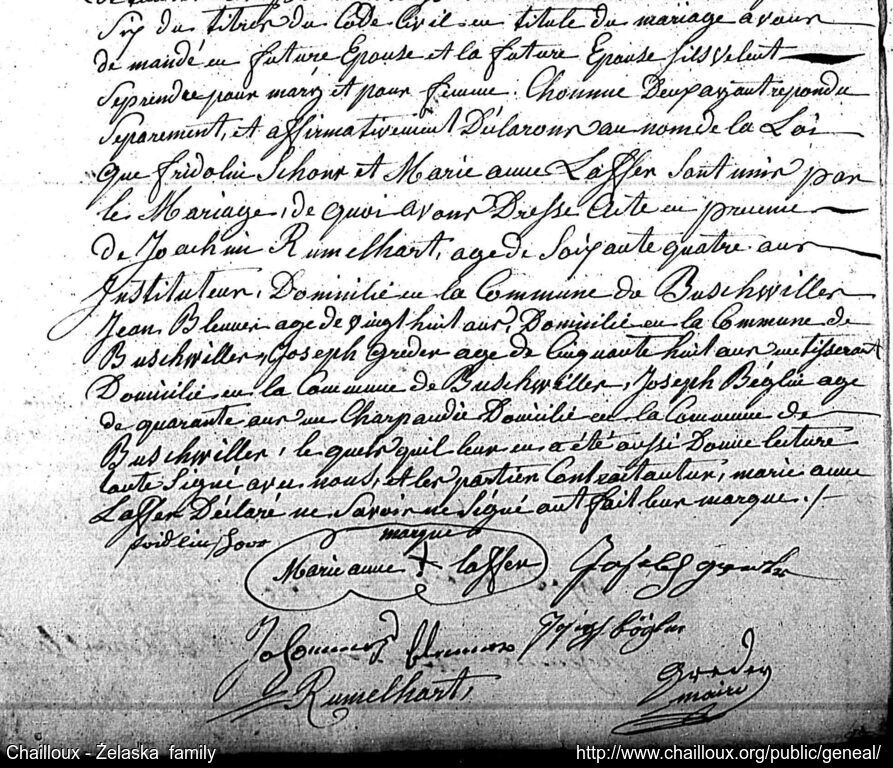 Six du titres du Code Civil en titule du mariage avons
de mandé en future Epouse et la future Epouse sils velent
se prendre pour mary et pour femme. Chounne Deux ayant repondu
separement, et affirmativement Déclarons au nom de la Loi
que fridolin Schorr et Marie anne Lasser sont unis par
le Mariage, de quoi avons Dresse acte en precence
de Joachim Rumelhart, age de soixante quatre ans
Instituteur, Domicilié en la Commune de Buschwiller
Jean Blenner age de vingt huit ans, Domicilié en la Commune de
Buschwiller, Joseph Greder age de cinquante huit ans un tisserant
Domicilié en la Commune de Buschwiller, Joseph Béglin age
de quarante ans un Charpandié Domicilié en la Commune de
Buschwiller, le quels quil leur en a été aussi Donné lecture
toute signé avec nous, et les partier Contractantur, marie anne
Lasser Déclaré ne savoir ne signé ont fait leur marque ./.
fridlin schorr
marque
Marie anne + lasser
Joseph
Johannes blenner
Rumelhart,
greder
maire
Chailloux - Żelaska family
http://www.chailloux.org/public/geneal/